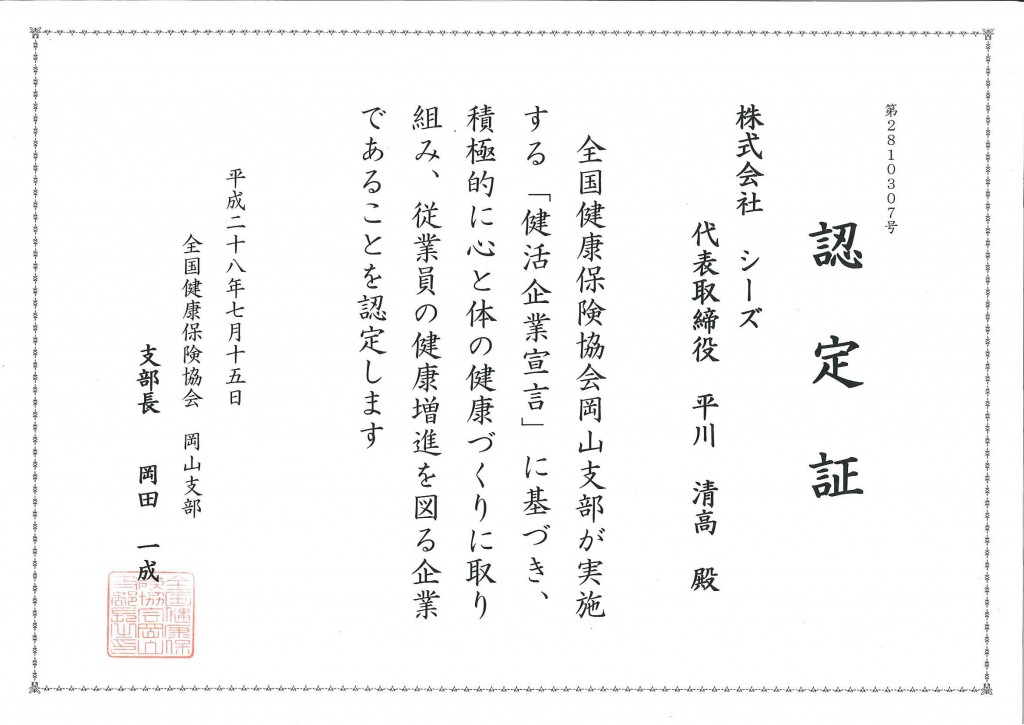 第2810307号
認定証
株式会社 シーズ
代表取締役 平川 清高 殿
全国健康保険協会岡山支部が実施
する「健活企業宣言」に基づき、
積極的に心と体の健康づくりに取り
組み、従業員の健康増進を図る企業
であることを認定します
平成二十八年七月十五日
全国健康保険協会 岡山支部
支部長 岡田 一成
全国健康保
険協会岡山
支部長之印